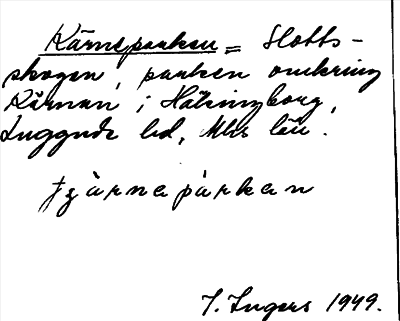 Kärneparken = Slotts-
skogen, parken omkring
Kärnan i Hälsingborg,
Luggude hd, Mlhs län.
tjärnepàrkan
I. Ingers 1949.